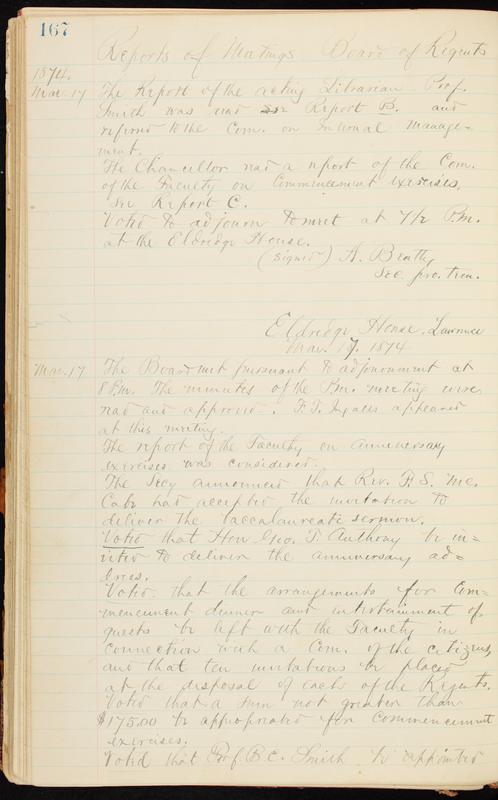 167
Reports of Meetings Board of Regents
1874.
Mar. 17 The Report of the acting Librarian Prof.
Smith was read see Report B. and
referred to the Com. on Internal Manage-
ment.
The Chancellor read a report of the Com.
of the Faculty on Commencement exercises,
see Report C.
Voted to adjourn to meet at 7 1/2 P.m.
at the Eldridge House.
(Signed) A. Beatty
Sec. pro. tem.
Eldridge House, Lawrence
Mar. 17, 1874
Mar. 17 The Board met pursuant to adjournment at
8 P.m. The minutes of the P.m. meeting were
read and approved. F.T. Ingalls appeared
at this meeting.
The report of the Faculty on anniversary
exercises was considered.
The Secy announced that Rev. F. S. Mc.
Cabe had accepted the invitation to
deliver the baccalaureate sermon.
Voted that Hon. Geo. T. Anthony be in-
vited to deliver the anniversary ad-
dress.
Voted that the arrangements for Com-
mencement dinner and entertainment of
guests be left with the Faculty in
connection with a Com. of the citizens,
and that ten invitations be placed
at the disposal of each of the Regents.
Voted that a sum not greater than
$175.00 be appropriated for commencement
exercises.
Voted that Prof. B C. Smith be appointed